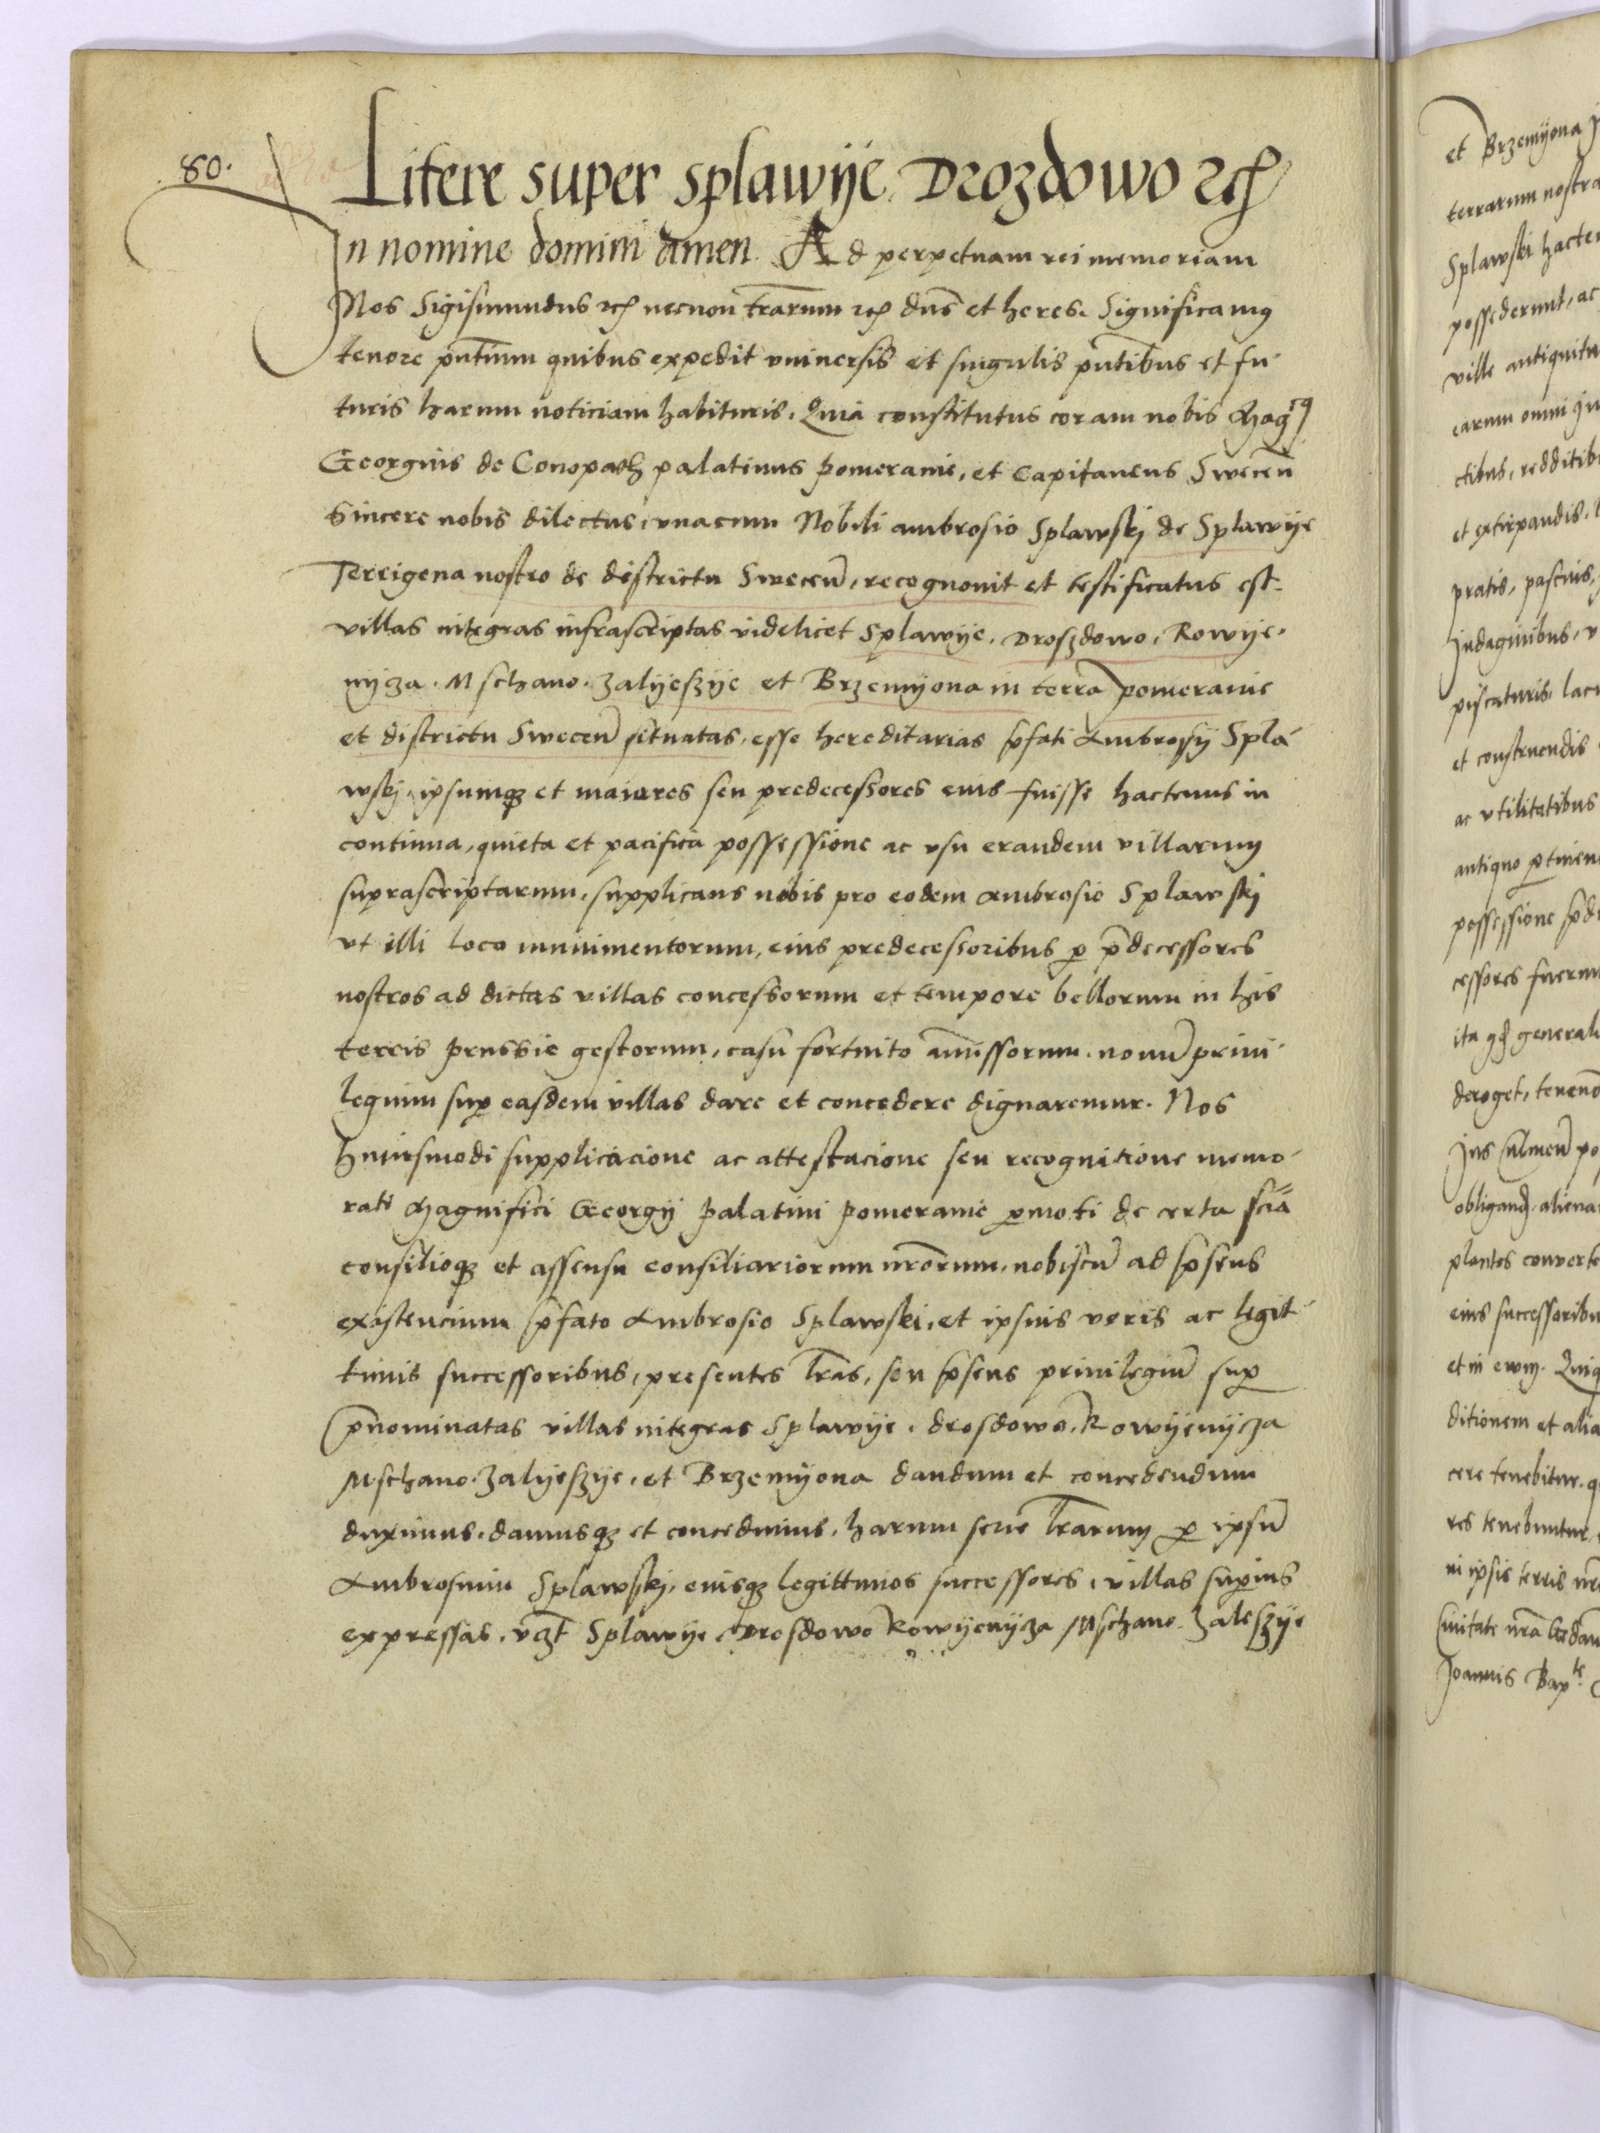 80.
Litere super Splawije Drozdowo etc
In nomine domini amen. Ad perpetuam rei memoriam
Nos Sigismundus etc necnon trarum etc dns et heres. Significamus
tenore pntium quibus expedit vniuersis et singulis pntibus et fu
turis harum noticiam habituris. Quia constitutus coram nobis Magcus
Georgius de Conopath palatinus pomeranie, et Capitaneus Swecen
Sincere nobis dilectus, vnacum Nobili ambrosio Splawskj de Splawije
Terrigena nostro de districtu Swecen, recognouit et testificatus est.
villas integras infrascriptas videlicet Splawije. Droszdowo. Rowije
nijcza. Mschano. Zalijeszije et Brzemijona in terra pomeranie
et districtu Swecen situatas, esse hereditarias pfati Ambrosij Spla
wskj, ipsumq et maiores seu predecessores eius fuisse hactenus in
continua, quieta et pacifica possessione ac vsu earundem villarum
suprascriptarum, supplicans nobis pro eodem Ambrosio Splawskj
vt illi loco munimentorum, eius predecessoribus p pdecessores
nostros ad dictas villas concessorum et tempore bellorum in his
terris prussie gestorum, casu fortuito amissorum. nouu priui
legium sup easdem villas dare et concedere dignaremur. Nos
huiusmodi supplicacione ac attestacione seu recognitione memo
rati Magnifici Georgij palatini pomeranie pmoti de certa scia
consilioq et assensu consiliariorum nrorum, nobiscu ad psens
existencium pfato Ambrosio Splawski, et ipsius veris ac legit
timis successoribus, presentes lras, seu psens priuilegiu sup
pnominatas villas integras Splawije. drosdowo. Rowijenijcza
Mschano. Zalijeszije, et Brzemijona dandum et concedendum
duximus. damusq et concedimus. harum serie lrarum p ipsu
Ambrosium Splawskj, eiusq legittimos successores, villas supius
expressas, vzt Splawije, Drosdowo Rowijenijcza Mschano. Zaleszije
et Brzemijona
terrarum nostra
Splawski hacten
possederunt, ac
ville antiquitu
earum omni
ctibus, redditib
et extirpandis.
pratis, pascuis,
Indaginibus, v
piscaturis, lacu
et construendis
ac vtilitatibus
antiquo ptinen
possessione
cessores fuerun
ita qd generali
deroget, tenen
Jus
obligand. aliena
plantes conuerte
eius successoribu
et in euum. Quiq
ditionem et alia
cere tenebitur. q
res tenebuntur
in ipsis terris nr
Ciuitate nra Gedan
Joannis Bapte